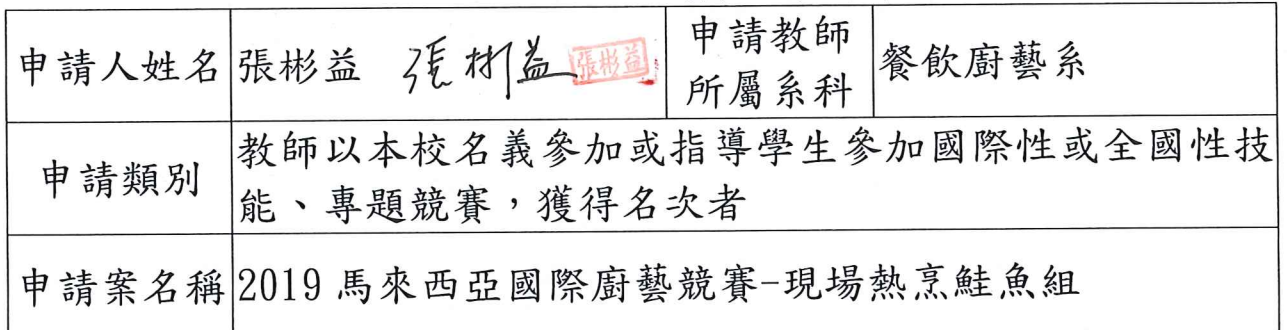 申請人姓名 張彬益 張彬益 張彬益 申請教師所屬系科 餐飲廚藝系
申請類別 教師以本校名義參加或指導學生參加國際性或全國性技
能、專題競賽，獲得名次者
申請案名稱 2019 馬來西亞國際廚藝競賽-現場熱烹鮭魚組